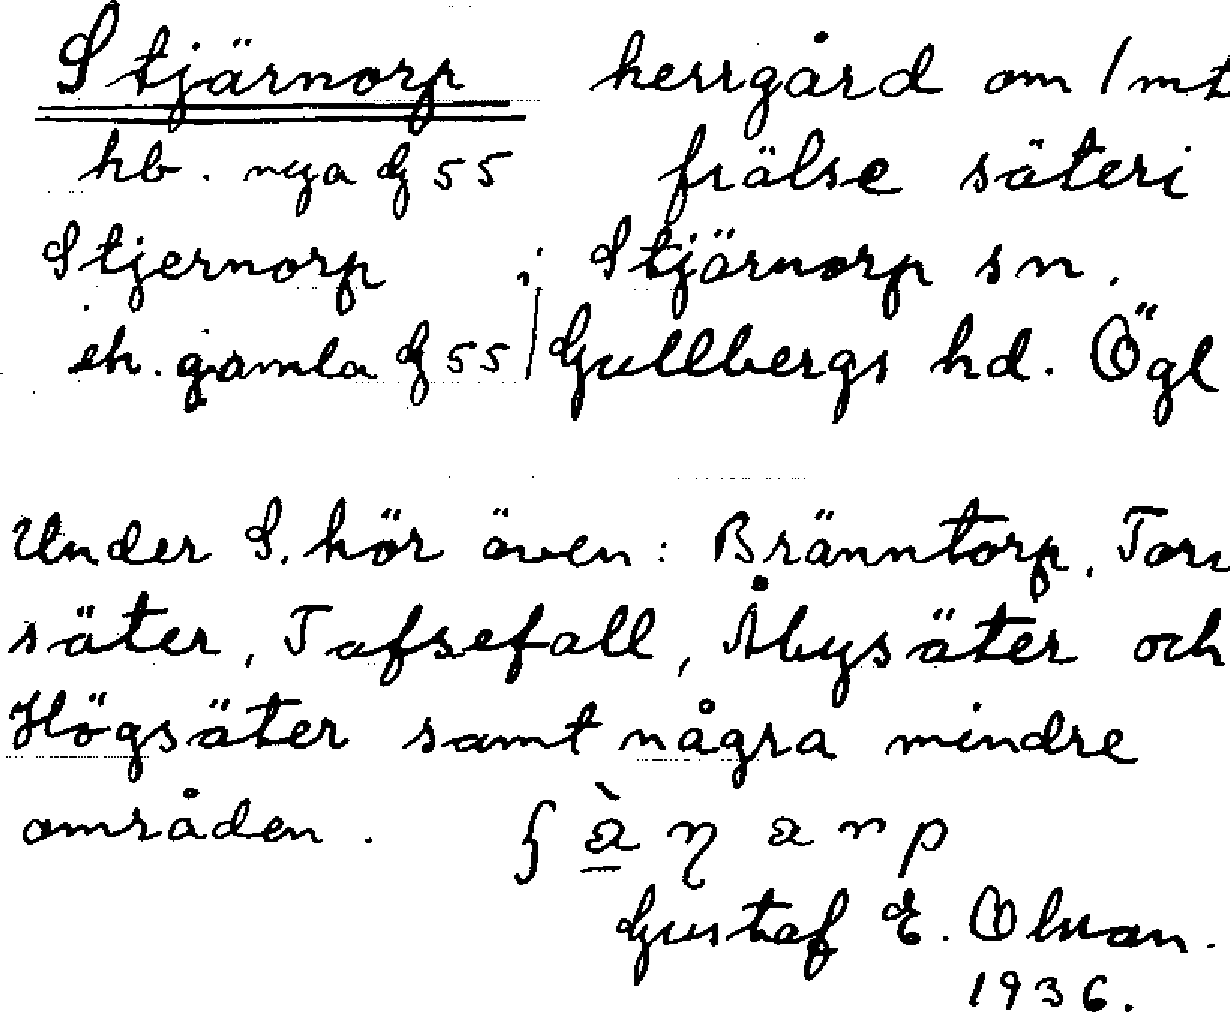 Stjärnorp herrgård om 1 mt
hb. nya G 55 frälse säteri
Stjernorp i Stjärnorp sn.
ek. gamla G 55 Gullbergs hd. Ögl
Under S. hör även: Bränntorp, Tors
säter, Tafsefall, Åbysäter och
Högsäter samt några mindre
områden.
Gustaf E. Olsson.
1936.